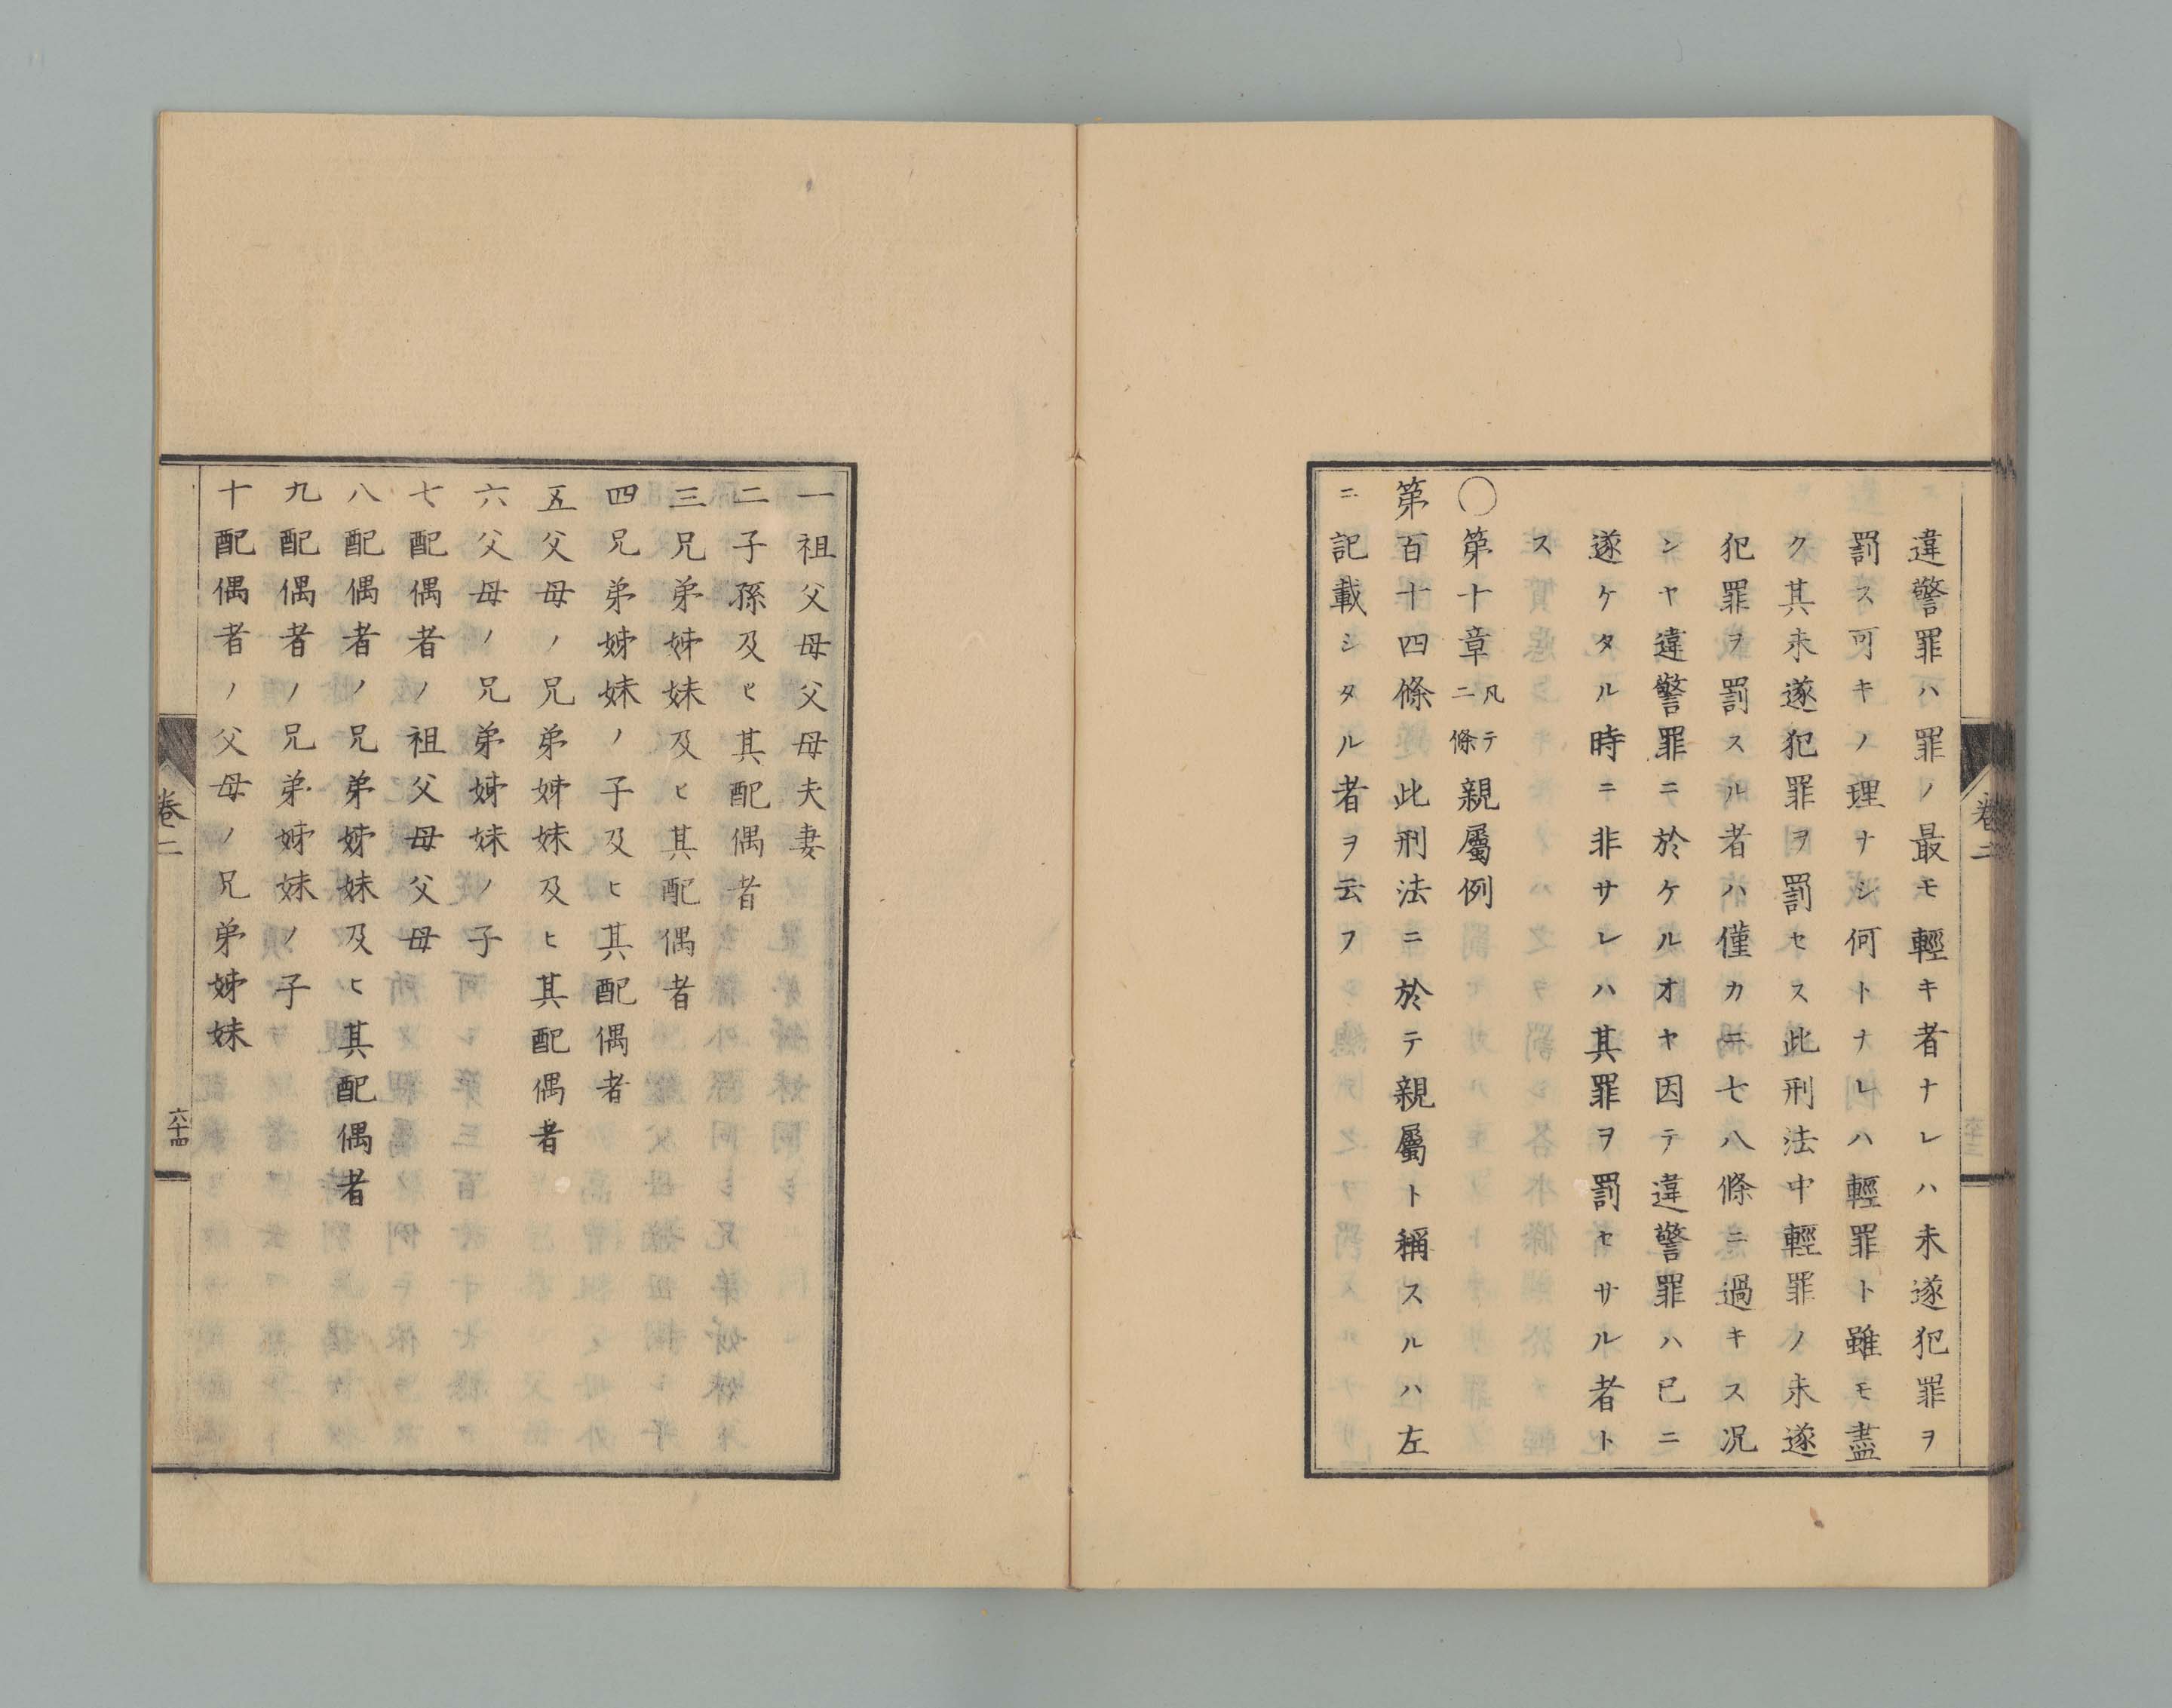 違警罪ハ罪ノ最モ輕キ者ナレハ未遂犯罪ヲ
罰ス可キノ理ナシ何トナレハ輕罪ト雖モ盡
ク其未遂犯罪ヲ罰セス此刑法中輕罪ノ未遂
犯罪ヲ罰スル者ハ僅カニ七八條ニ過キス况
ンヤ違警罪ニ於ケルオヤ因テ違警罪ハ已ニ
遂ケタル時ニ非サレハ其罪ヲ罰セサル者ト
ス
〇第十章凡テ二條親屬例
第百十四條此刑法ニ於テ親屬ト稱スルハ左
ニ記載シタル者ヲ云フ
卷二
一祖父母父母夫妻
二子孫及ヒ其配偶者
三兄弟姊妹及ヒ其配偶者
四兄弟姊妹ノ子及ヒ其配偶者
五父母ノ兄弟姊妹及ヒ其配偶者
六父母ノ兄弟姊妹ノ子
七配偶者ノ祖父母父母
八配偶者ノ兄弟姊妹及ヒ其配偶者
九配偶者ノ兄弟姊妹ノ子
十配偶者ノ父母ノ兄弟姊妹
卷二
六十四